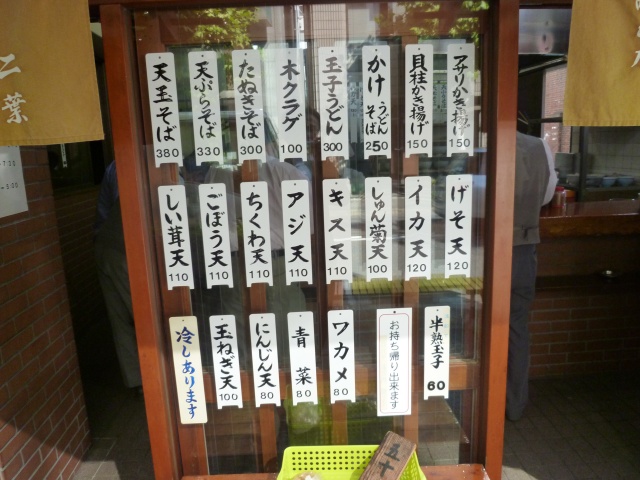 二葉
天玉そば 380
天ぷらそば 330
たぬきそば 300
木クラグ 100
玉子うどん 300
かけうどんそば 250
貝柱かき揚げ 150
アサリかき揚げ 150
しい茸天 110
ごぼう天 110
ちくわ天 110
アジ天 110
キス天 110
しゅん菊天 100
イカ天 120
げそ天 120
冷しあります
玉ねぎ天 100
にんじん天 80
青菜 80
ワカメ 80
お持ち帰り出来ます
半熟玉子 60
五十